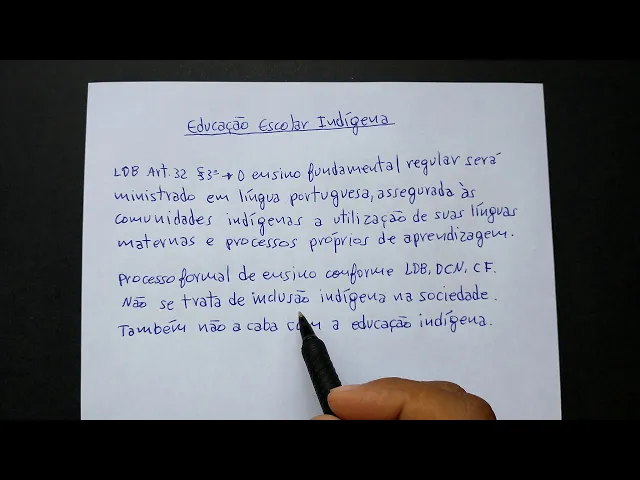 Educação Escolar Indígena
LDB Art. 32 §3º → O ensino fundamental regular será
ministrado em língua portuguesa, assegurada às
comunidades indígenas a utilização de suas línguas
maternas e processos próprios de aprendizagem.
Processo formal de ensino conforme LDB, DCN, CF.
Não se trata de inclusão indígena na sociedade.
Também não acaba com a educação indígena.